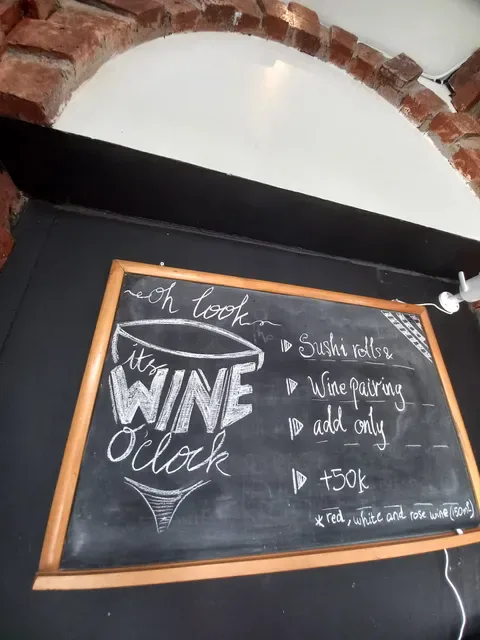 ~Oh look~
its
WINE
O'clock
Sushi rolls &
Wine pairing
add only
+50k
* red, white and rose wine (150ml)